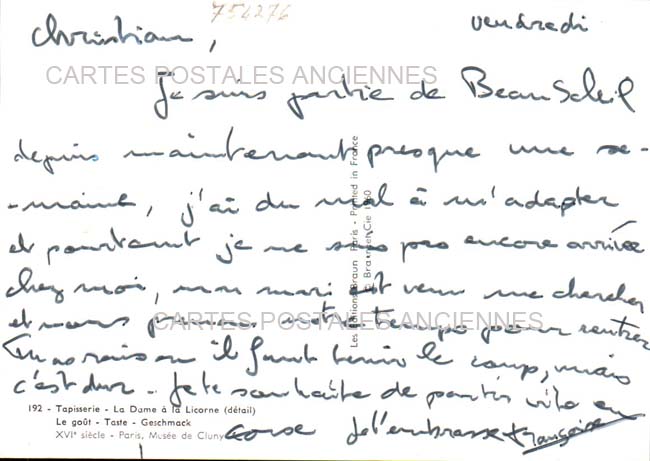 754276
Christian, vendredi
CARTES POSTALES ANCIENNES
Je suis partie de Beau Soleil
depuis maintenant presque une se-
-maine, j'ai du mal à m'adapter
et pourtant je ne suis pas encore arrivée
chez moi, mon mari est venu me chercher
et nous prenons notre temps pour rentrer
CARTES POSTALES ANCIENNES
Tu as raison il faut tenir le coup, mais
c'est dur. Je te souhaite de partir vite en
Corse Je t'embrasse Françoise
192 - Tapisserie - La Dame à la Licorne (détail)
Le goût - Taste - Geschmack
XVIe siècle - Paris, Musée de Cluny
Les Editions Braun Paris - Printed in France
Braun et Cie 1960